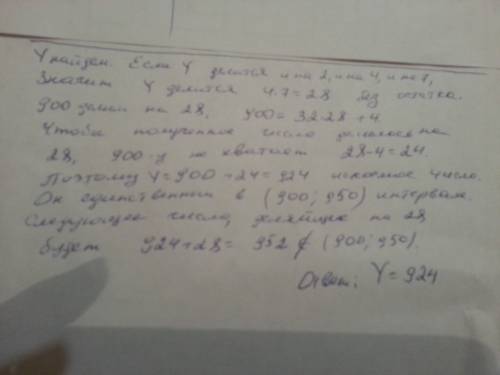 Y найден. Если Y делится и на 2, и на 4, и на 7,
Значит Y делится 4·7=28 без остатка.
900 делим на 28, 900=32·28+4
Чтобы полученное число делилось на
28, 900-у не хватает 28-4=24.
Поэтому Y=900+24=924 искомое число.
Он единственный в (900; 950) интервале.
Следующее число, делящее на 28
будет 924+28= 952 ∉ (900; 950).
Ответ: Y=924